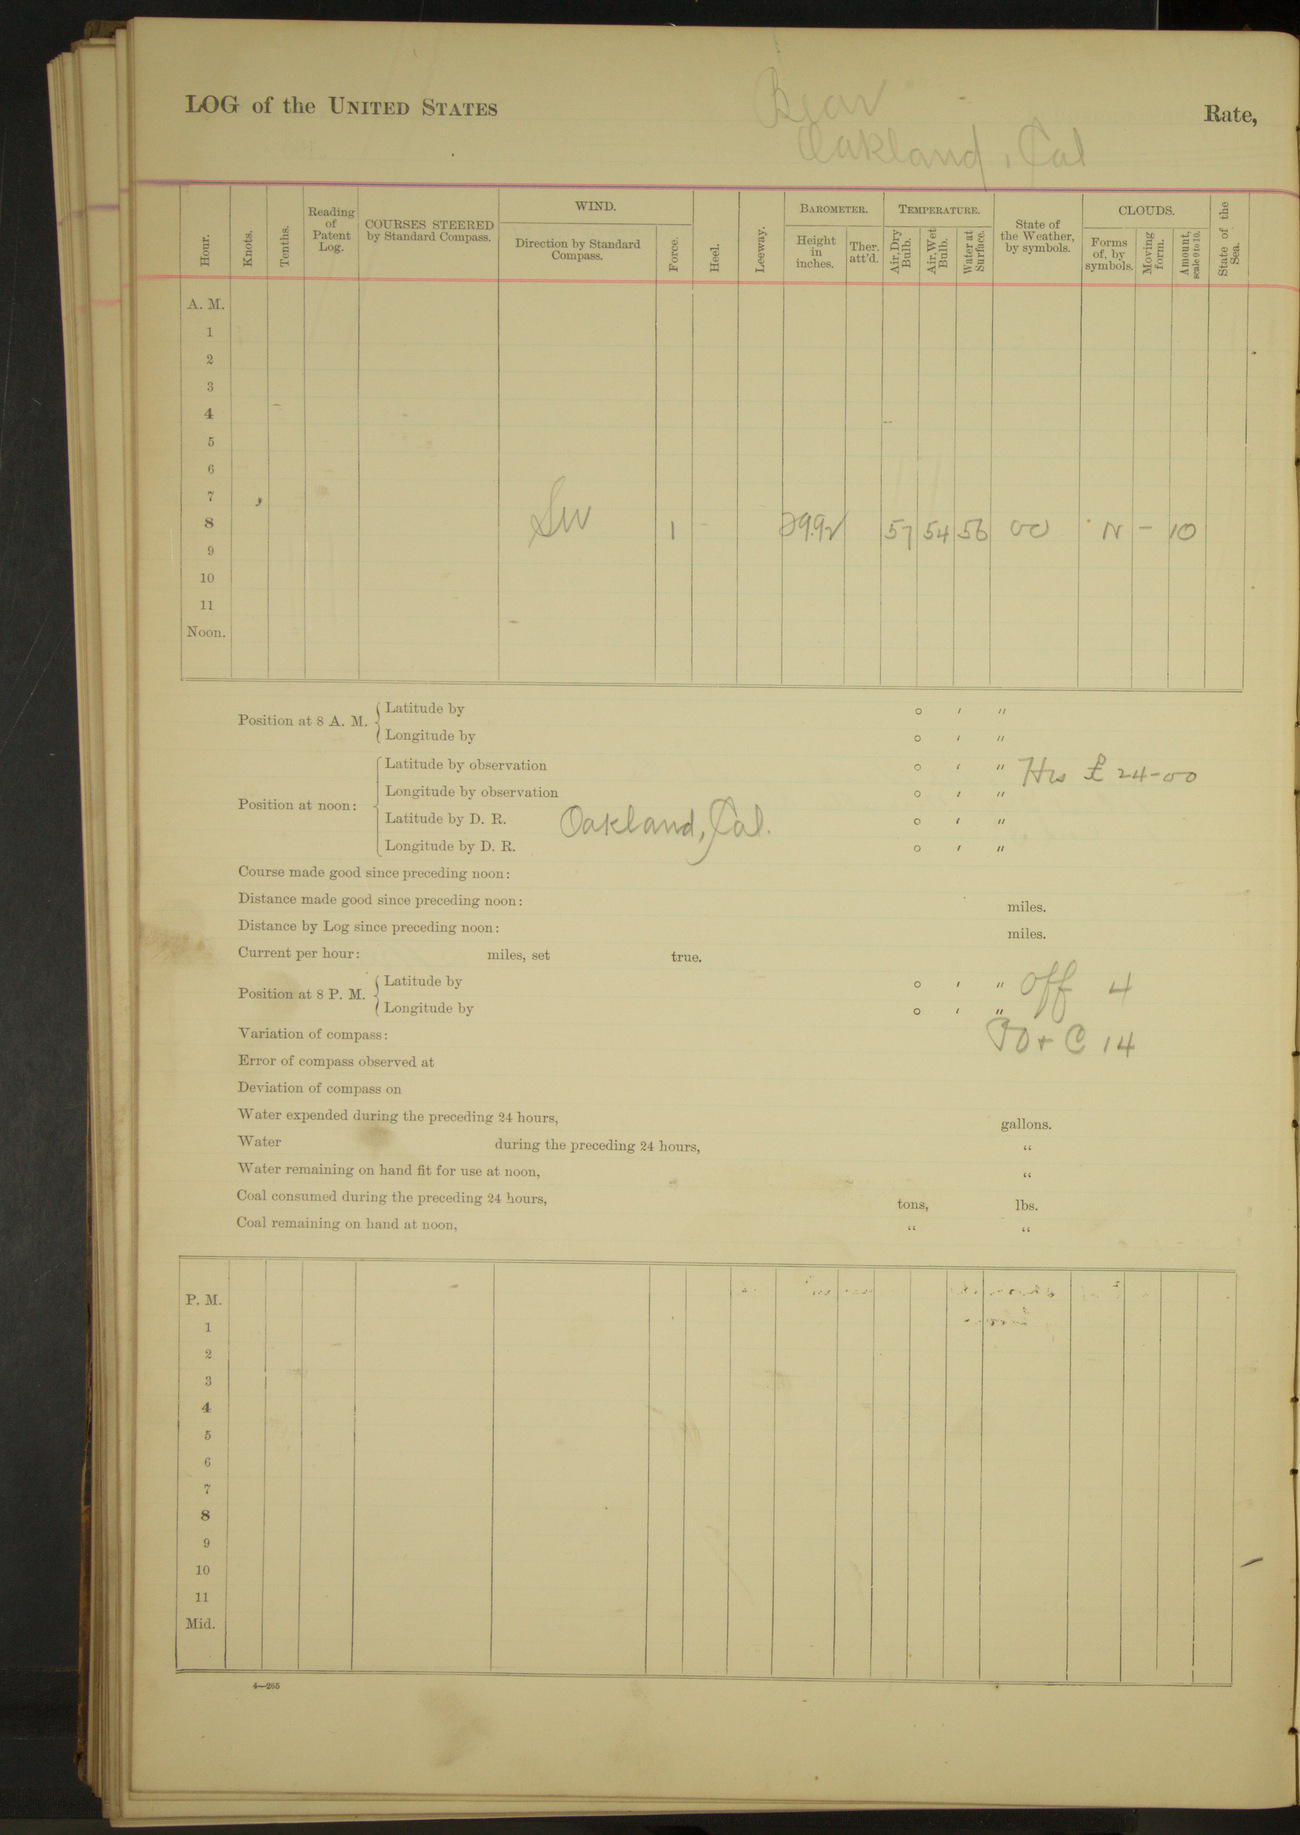 LOG of the UNITED STATES Bear Rate,
Oakland, Cal
Hour. Knots. Tenths. Reading of Patent Log. COURSES STEERED by Standard Compass. WIND. Direction by Standard Compass. Force. Heel. Leeway. BAROMETER. Height in inches. Ther. att'd. TEMPERATURE. Air, Dry Bulb. Air, Wet Bulb. Water at Surface. State of the Weather, by symbols. CLOUDS. Forms of, by symbols. Moving form. Amount, scale 0 to 10. State of the Sea.
A. M.
1
2
3
4
5
6
7
8 SW 1 29.92 57 54 56 OC N - 10
9
10
11
Noon.
Position at 8 A. M. Latitude by ° ′ ″
Longitude by ° ′ ″
Position at noon: Latitude by observation ° ′ ″ Hrs £ 24-00
Longitude by observation ° ′ ″
Latitude by D. R. Oakland, Cal. ° ′ ″
Longitude by D. R. ° ′ ″
Course made good since preceding noon:
Distance made good since preceding noon: miles.
Distance by Log since preceding noon: miles.
Current per hour: miles, set true.
Position at 8 P. M. Latitude by ° ′ ″ Off 4
Longitude by ° ′ ″
Variation of compass: PO + C 14
Error of compass observed at
Deviation of compass on
Water expended during the preceding 24 hours, gallons.
Water during the preceding 24 hours, “
Water remaining on hand fit for use at noon, “
Coal consumed during the preceding 24 hours, tons, lbs.
Coal remaining on hand at noon, “ “
P. M.
1
2
3
4
5
6
7
8
9
10
11
Mid.
4—265